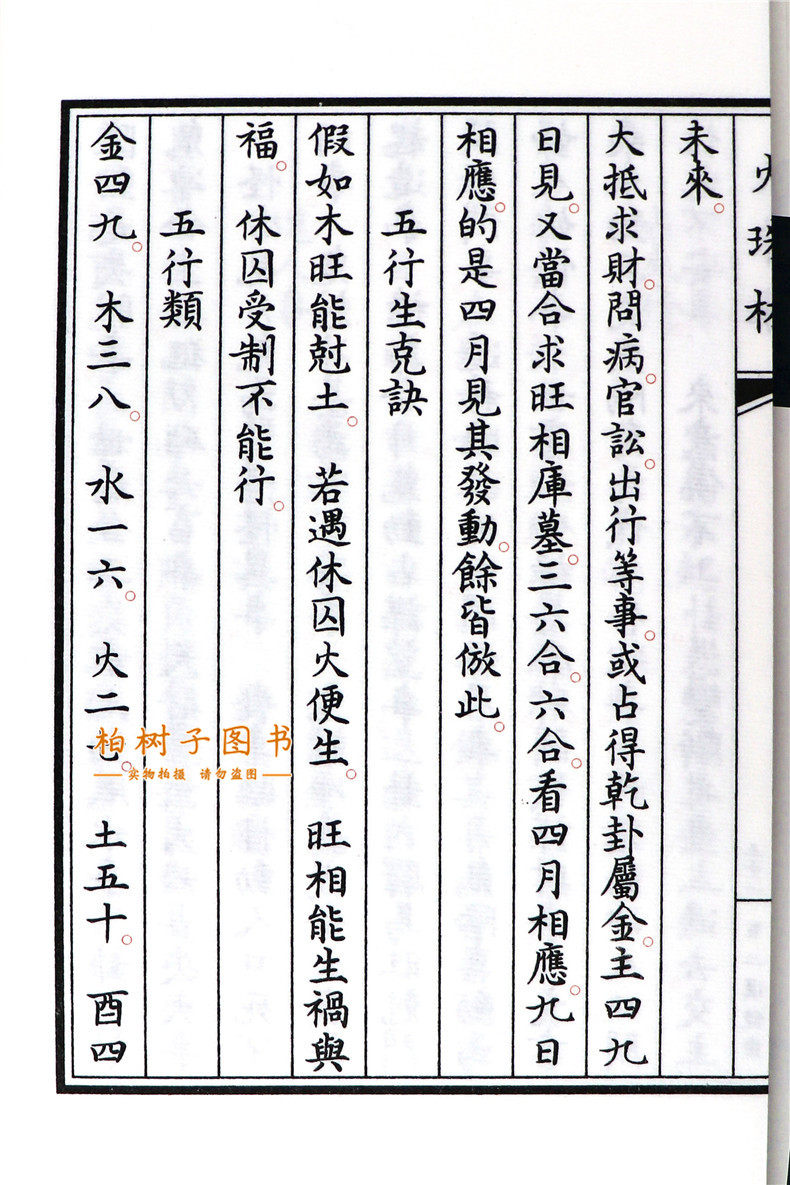 火珠林
未來。
大抵求財。問病。官訟。出行等事。或占得乾卦屬金。主四九
日見。又當合求旺相庫墓。三六合。六合。看四月相應。九日
相應。的是四月見其發動。餘皆倣此。
五行生克訣
假如木旺能尅土。 若遇休囚火便生。 旺相能生禍與
福。 休囚受制不能行。
五行類
金四九。 木三八。 水一六。 火二七。 土五十。 酉四
柏树子图书
实物拍摄 请勿盗图